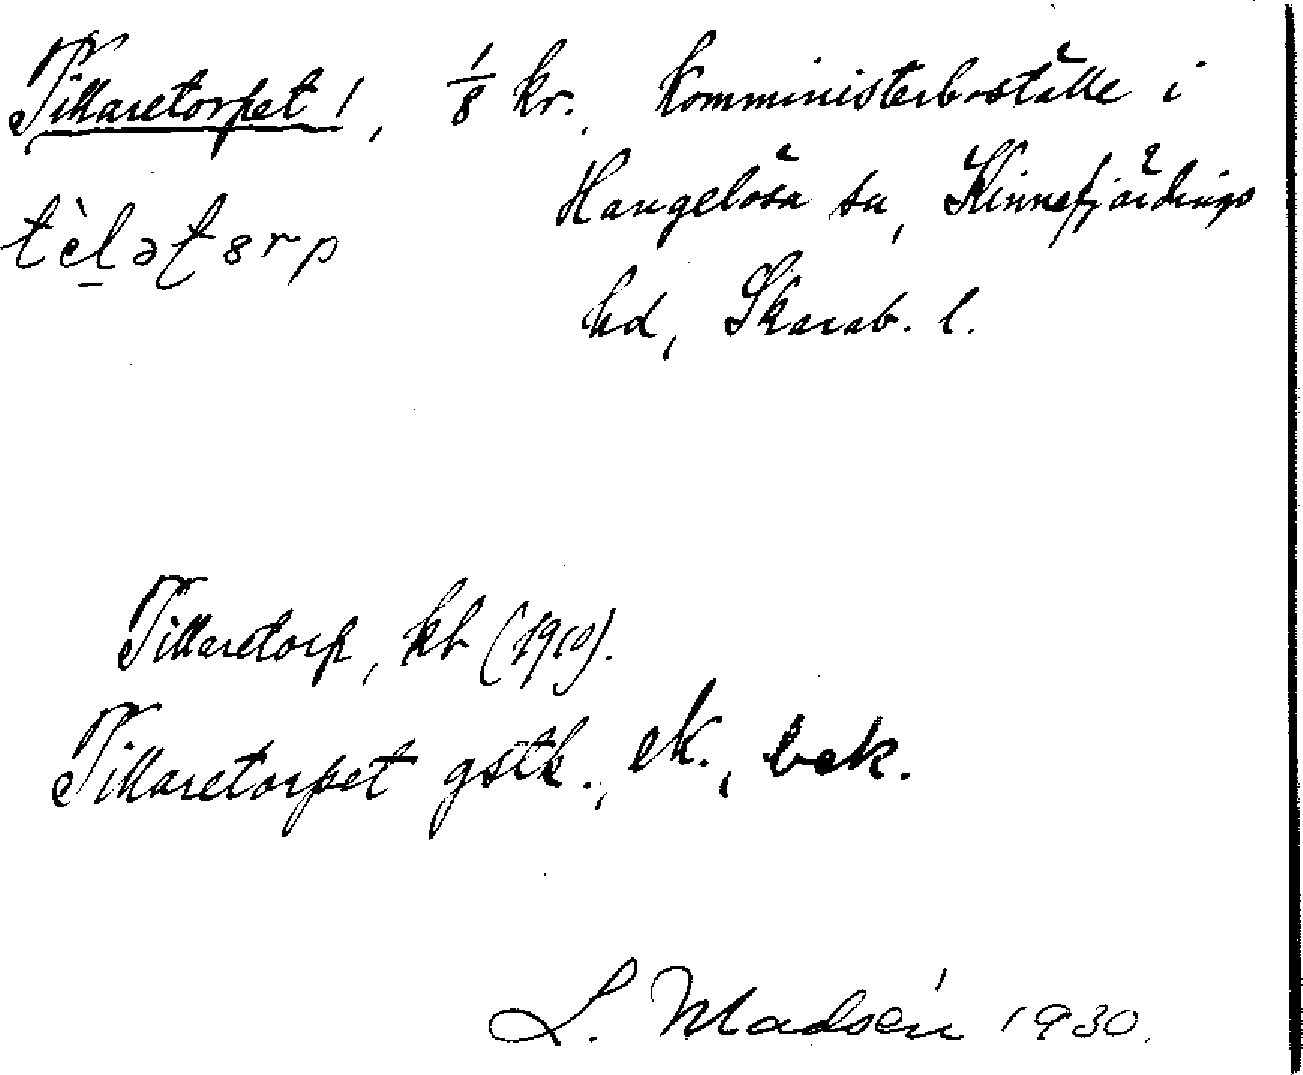 Tillaretorpet 1, 1/8 kr. Komministerboställe i
tèlatorp Hangelösa sn, Kinnefjärdings
hd, Skarab. l.
Tillaretorp, kb (1910).
Tillaretorpet gstk., ek., bek.
L. Madsén 1930.